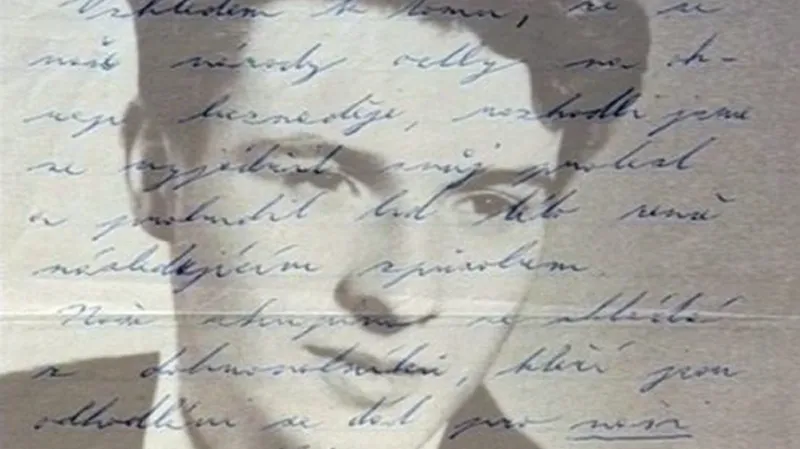 Vzhledem k tomu, že se
naše národy octly na ok-
raji beznaděje, rozhodli jsme
se vyjádřit svůj protest
a probudit lid této země
následujícím způsobem.
Naše skupina se skládá
z dobrovolníků, kteří jsou
odhodláni se dát pro naši